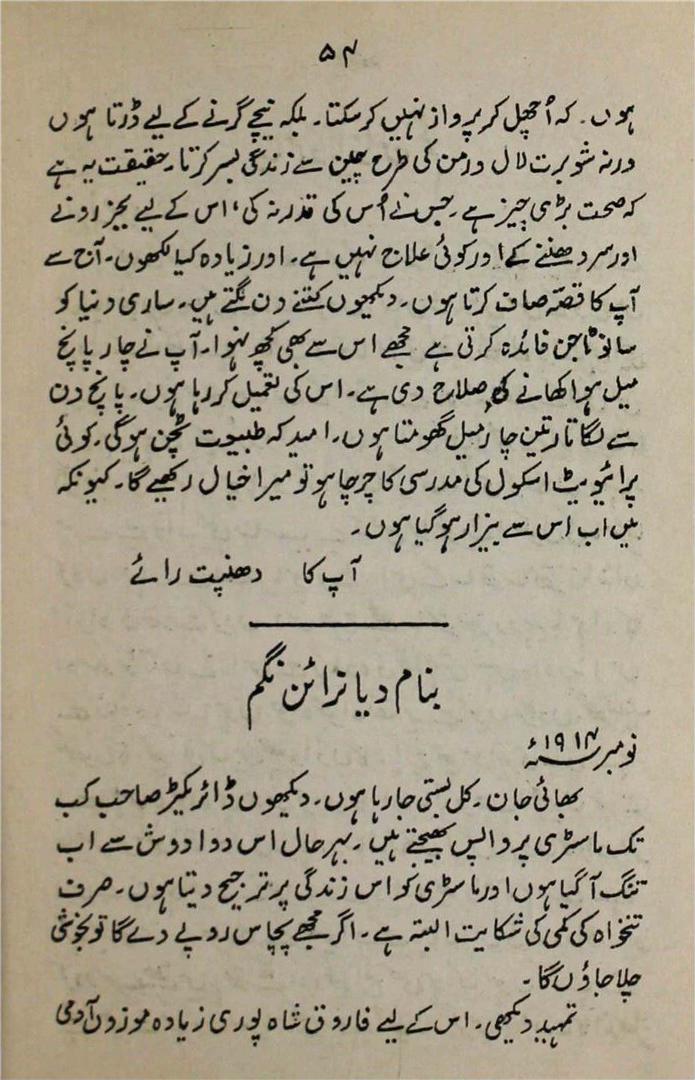 ۵۴
ہوں۔ کہ اُچھل کر پرواز نہیں کر سکتا۔ بلکہ نیچے گرنے کے لیے ڈرتا ہوں
ورنہ شوبرت لال ورمن کی طرح چین سے زندگی بسر کرتا۔ حقیقت یہ ہے
کہ صحت بڑی چیز ہے۔ جس نے اُس کی قدر نہ کی، اس کے لیے بجز رونے
اور سر دھننے کے اور کوئی علاج نہیں ہے۔ اور زیادہ کیا لکھوں۔ آج سے
آپ کا قصّہ صاف کرتا ہوں۔ دیکھیوں کتنے دن لگتے ہیں۔ ساری دنیا کو
سانوٹاجن فائدہ کرتی ہے مجھے اس سے بھی کچھ نہوا۔ آپ نے چار پانچ
میل ہوا کھانے کی صلاح دی ہے۔ اس کی تعمیل کر رہا ہوں۔ پانچ دن
سے لگاتار تین چار میل گھومتا ہوں۔ امید کہ طبیوت ٹچن ہوگی۔ کوئی
پرائیویٹ اسکول کی مدرسی کا چرچا ہو تو میرا خیال رکھیے گا۔ کیونکہ
میں اب اس سے بیزار ہو گیا ہوں۔
آپ کا دھنپت رائے
بنام دیا نرائن نگم
نومبر ۱۹۱۴ء
بھائی جان۔ کل بستی جا رہا ہوں۔ دیکھوں ڈائریکٹر صاحب کب
تک ماسٹری پر واپس بھیجتے ہیں۔ بہرحال اس دوا دوش سے اب
تنگ آگیا ہوں اور ماسٹری کو اس زندگی پر ترجیح دیتا ہوں۔ صرف
تنخواہ کی کمی کی شکایت البتہ ہے۔ اگر مجھے پچاس روپے دے گا تو بخوشی
چلا جاؤں گا۔
تمہید دیکھی۔ اس کے لیے فاروق شاہ پوری زیادہ موزون آدمی